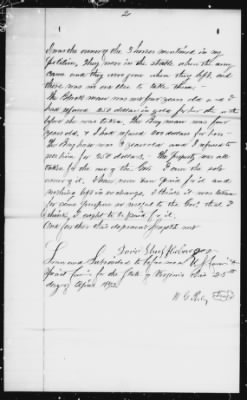 2
I was the owner of the 3 horses mentioned in my
petition, they were in the stable when the army
came and they were gone when they left and
there was no one else to take them –
The Black mare was four years old and I
had refused 210 dollars in gold for her
before she was taken. The Bay mare was four
years old, & I had refused 200 dollars for her –
The Bay horse was years old and I refused to
sell him for 250 dollars. The property was all
taken for the use of the Govt. I am the sole
owner of it. I have never been paid for it and
nothing left in exchange, I think it was taken
for some purpose in respect to the Govt. that I
think I ought to be paid for it.
And further this deponent sayeth not
Sworn and Subscribed to before me a U.S. Commr &
Special Commr for the State of Virginia this 25th
day of April 1872.
W G Riley